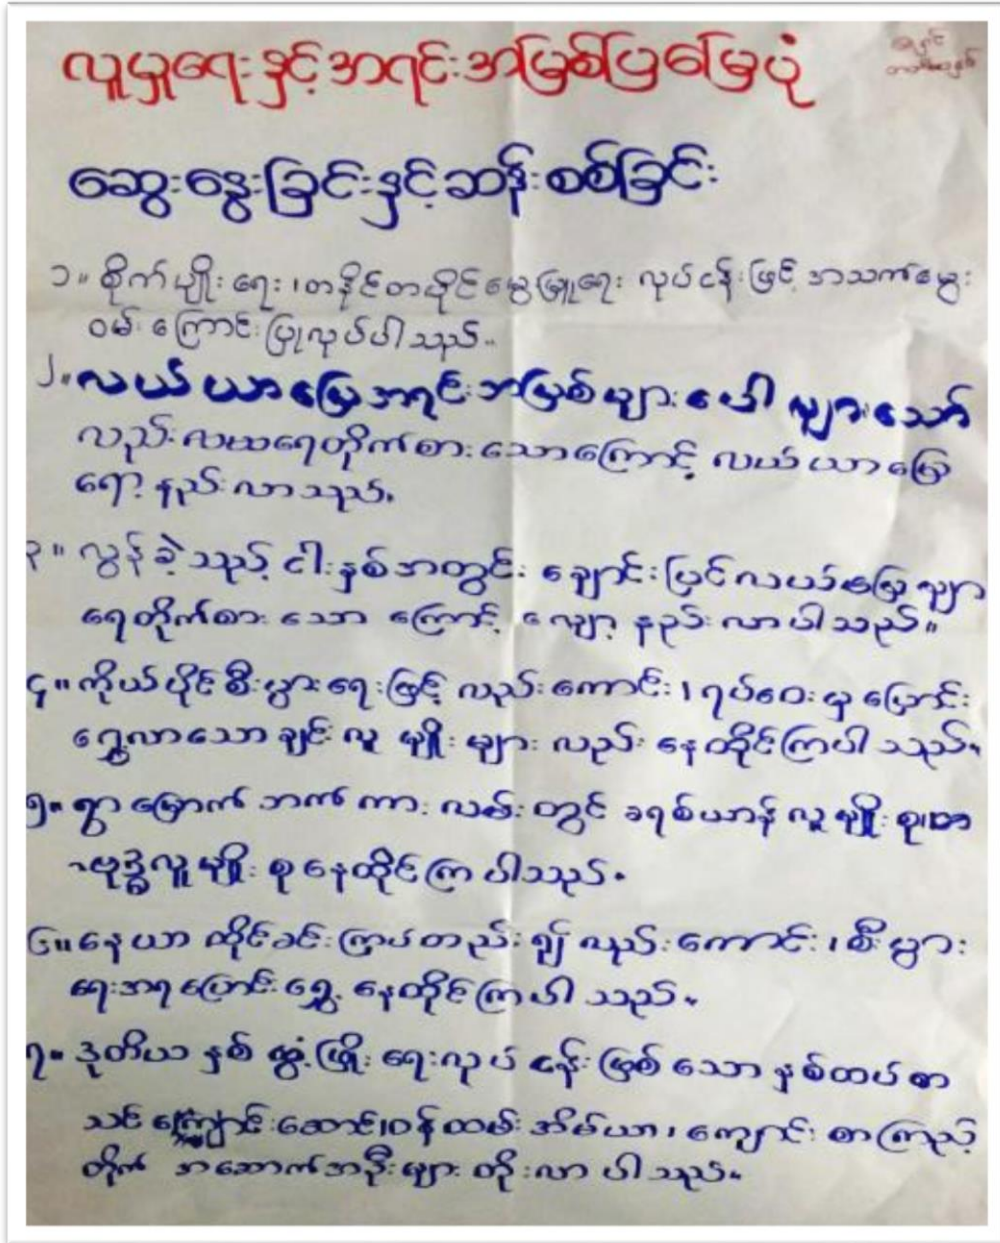 လူမှုရေးနှင့်အရင်းအမြစ်ပြမြေပုံ
ဆွေးနွေးခြင်းနှင့်ဆန်းစစ်ခြင်း
၁။ စိုက်ပျိုးရေး၊တနိုင်တပိုင်မွေးမြူရေး လုပ်ငန်းဖြင့် အသက်မွေး
ဝမ်းကြောင်းပြုလုပ်ပါသည်။
၂။ လယ်ယာမြေအရင်းအမြစ်များပေါများသော်
လည်း လယရေတိုက်စားသောကြောင့် လယ်ယာမြေ
ရော့နည်းလာသည်.
၃။ လွန်ခဲ့သည့်ငါးနှစ်အတွင်း ချောင်းပြင်လယ်မြေမျာ
ရေတိုက်စား သော ကြောင့် လျော့နည်းလာပါသည်။
၄။ ကိုယ်ပိုင်စီးပွားရေးဖြင့် လည်းကောင်း၊ရပ်ဝေးမှပြောင်း
ရွှေ့လာသောချင်းလူမျိုးများ လည်း နေထိုင်ကြပါသည်။
၅။ ရွာမြောက်ဘက်ကားလမ်းတွင် ခရစ်ယာန်လူမျိုးစု၊
ဗုဒ္ဓလူမျိုးစုနေထိုင်ကြပါသည်.
၆။ နေယာထိုင်ခင်းကြပ်တည်း၍လည်းကောင်း၊စီးပွား
ရေးအရပြောင်းရွှေ့နေထိုင်ကြပါသည်။
၇။ ဒုတိယနှစ်ဖွံ့ဖြိုးရေးလုပ်ငန်းဖြစ်သောနှစ်ထပ်စာ
သင်ကျောင်းဆောင်၊ဝန်ထမ်းအိမ်ယာ၊ကျောင်းစာကြည့်
တိုက် အဆောက်အဦးများ တိုးလာပါသည်။